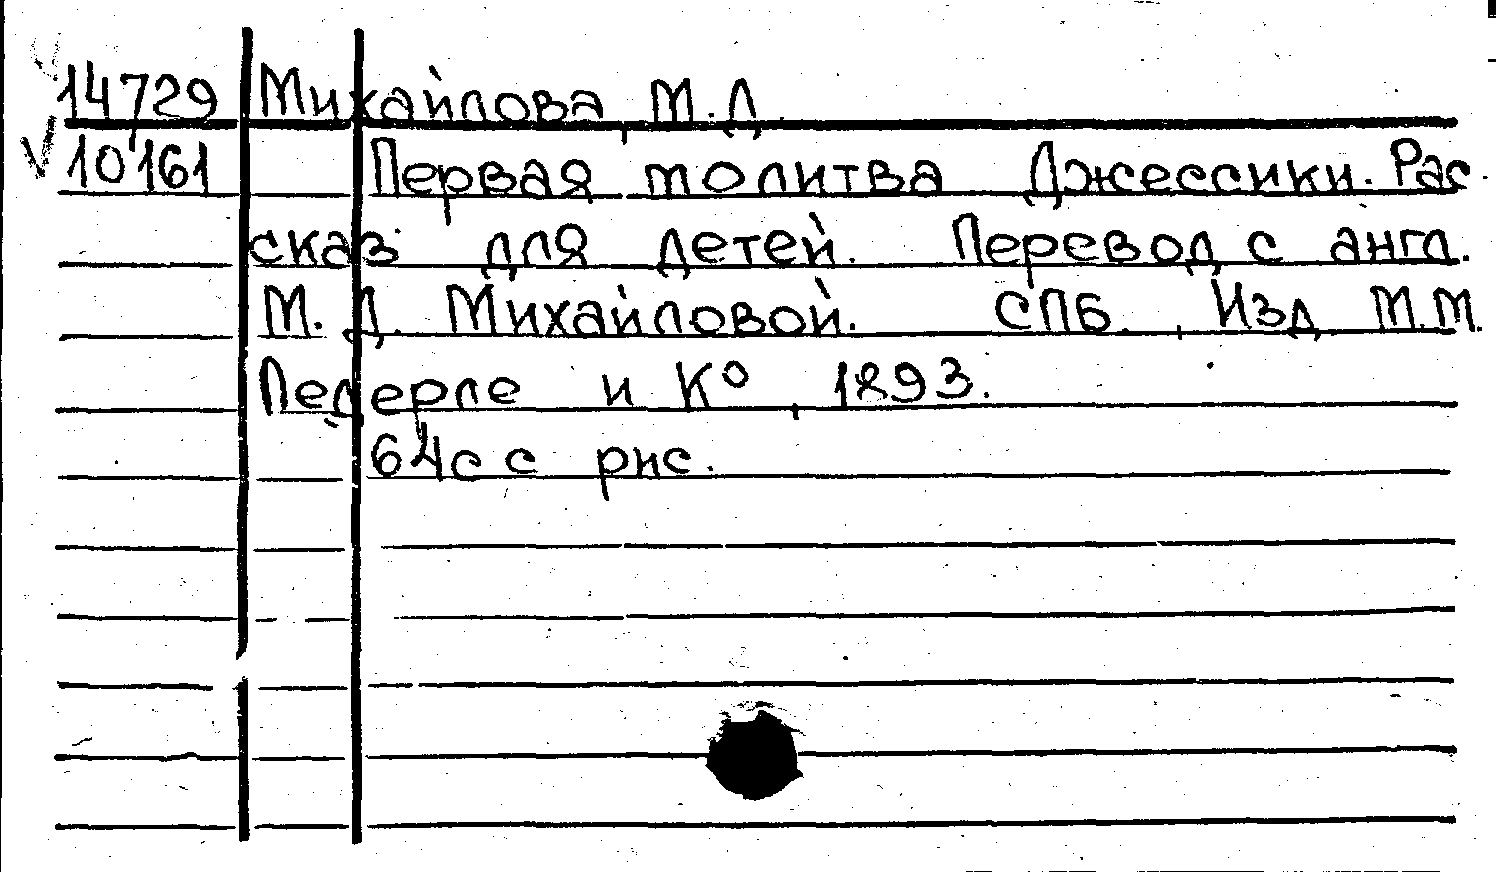 14729 Михайлова, М. Д.
10161 Первая молитва Джессики. Рас-
сказ для детей. Перевод с англ.
М. Д. Михайловой. СПБ., Изд М.М.
Ледерле и К°, 1893.
64с с рис.